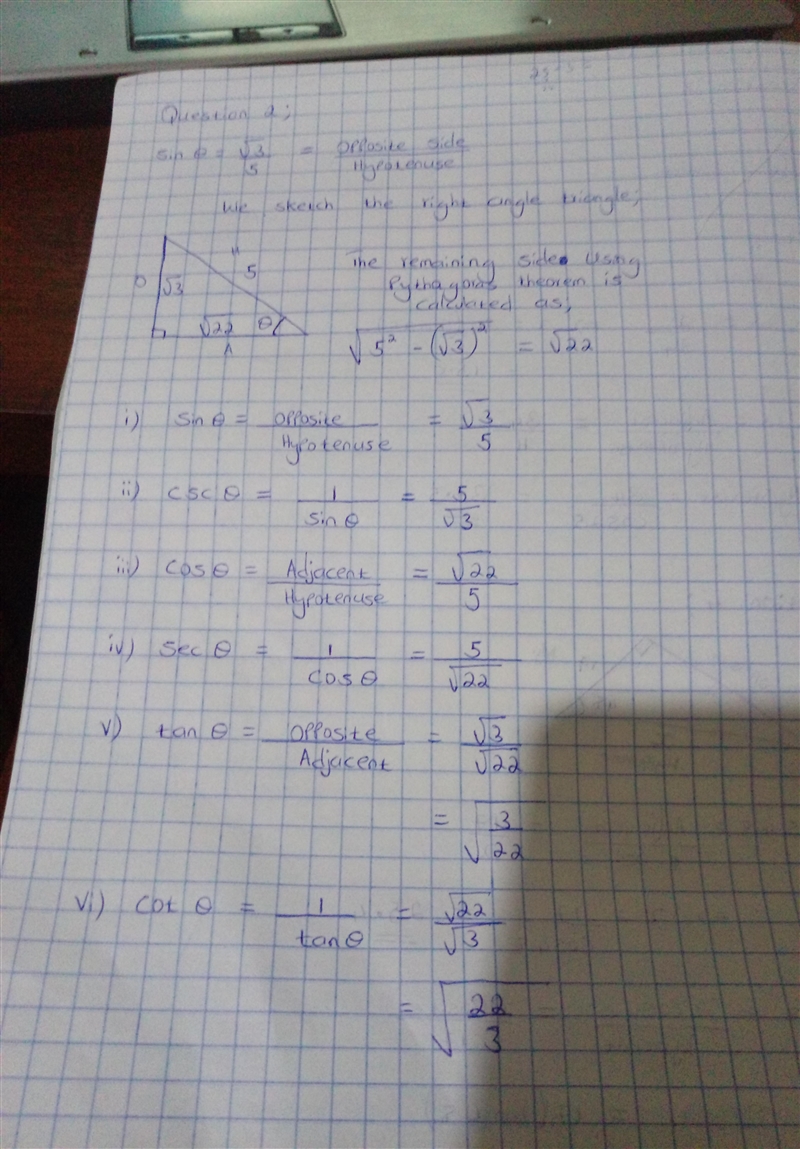 Question 2;
sin θ = √3/5 = Opposite side/Hypotenuse
We sketch the right angle triangle;
O √3 H 5
√22 θ
A
The remaining side using
Pythagoras theorem is
calculated as,
√(5² - (√3)²) = √22
i) sin θ = Opposite/Hypotenuse = √3/5
ii) csc θ = 1/sin θ = 5/√3
iii) cos θ = Adjacent/Hypotenuse = √22/5
iv) sec θ = 1/cos θ = 5/√22
v) tan θ = Opposite/Adjacent = √3/√22
= √(3/22)
vi) cot θ = 1/tan θ = √22/√3
= √(22/3)